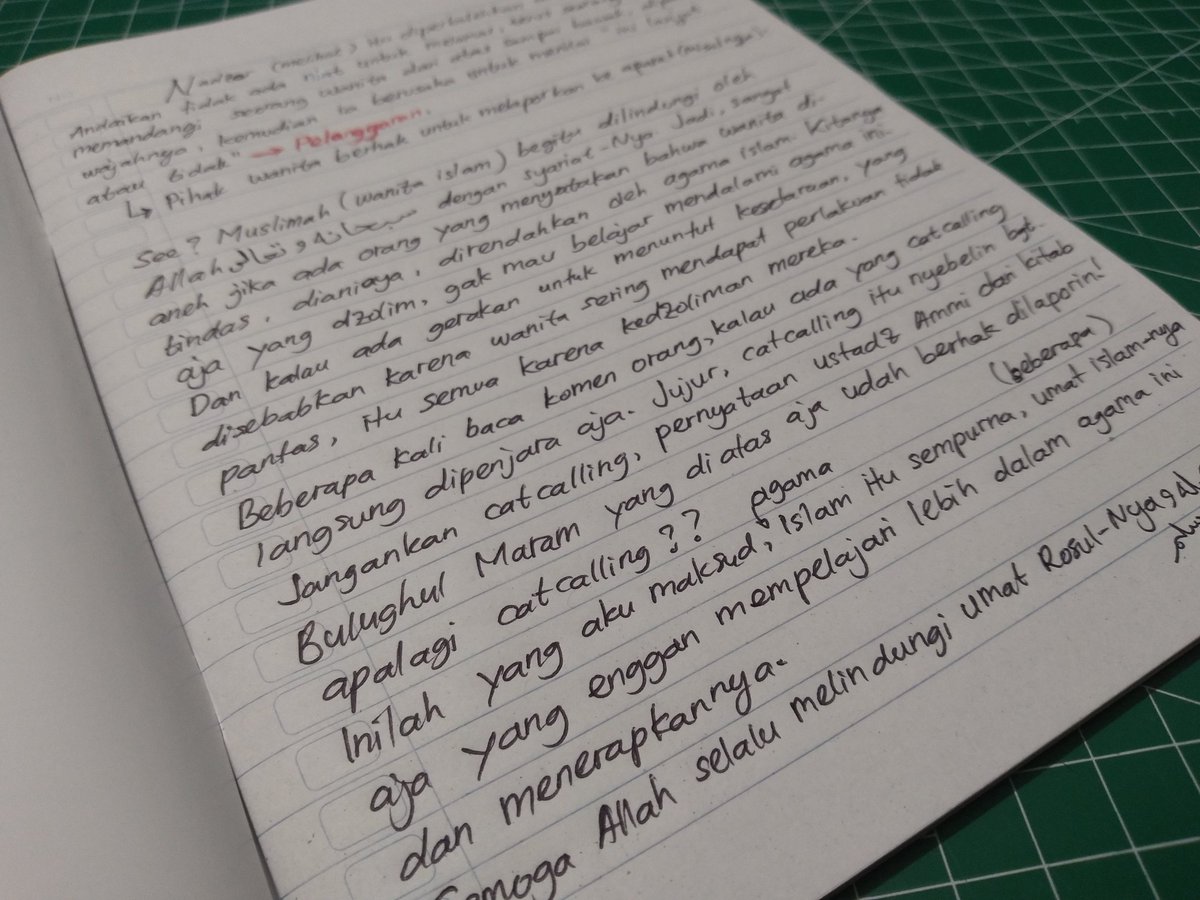 Nadzor (melihat) itu diperbolehkan
Andaikan tidak ada niat untuk melamar, terus
memandangi seorang wanita dari atas sampai bawah,
wajahnya, kemudian ia berusaha untuk menilai "ini
atau tidak" → Pelanggaran.
↳ Pihak wanita berhak untuk melaporkan ke aparat
See? Muslimah (wanita islam) begitu dilindungi oleh
Allah سبحانه وتعالى dengan syariat-Nya. Jadi, sangat
aneh jika ada orang yang menyatakan bahwa wanita di-
tindas, dianiaya, direndahkan oleh agama islam. Kitanya
aja yang dzolim, gak mau belajar mendalami agama ini.
Dan kalau ada gerakan untuk menuntut kesetaraan, yang
disebabkan karena wanita sering mendapat perlakuan tidak
pantas, itu semua karena kedzoliman mereka.
Beberapa kali baca komen orang, kalau ada yang catcalling
langsung dipenjara aja. Jujur, catcalling itu nyebelin bgt.
Jangankan catcalling, pernyataan ustadz Ammi dari kitab
Bulughul Maram yang di atas aja udah berhak dilaporin!
apalagi catcalling??
(beberapa)
Inilah yang aku maksud, agama Islam itu sempurna, umat islam-nya
aja yang enggan mempelajari lebih dalam agama ini
dan menerapkannya.
Semoga Allah selalu melindungi umat Rosul-Nya